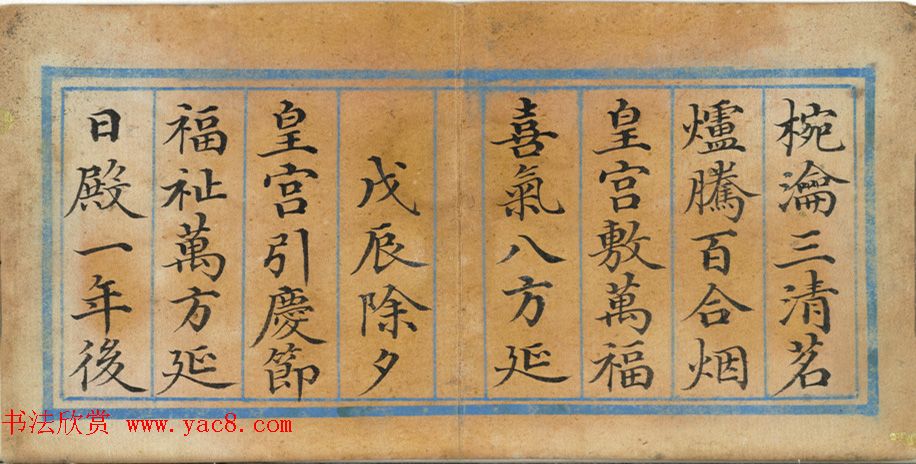 椀瀹三清茗
爐騰百合烟
皇宮敷萬福
喜氣八方延
戊辰除夕
皇宮引慶節
福祉萬方延
日殿一年後
书法欣赏 www.yac8.com